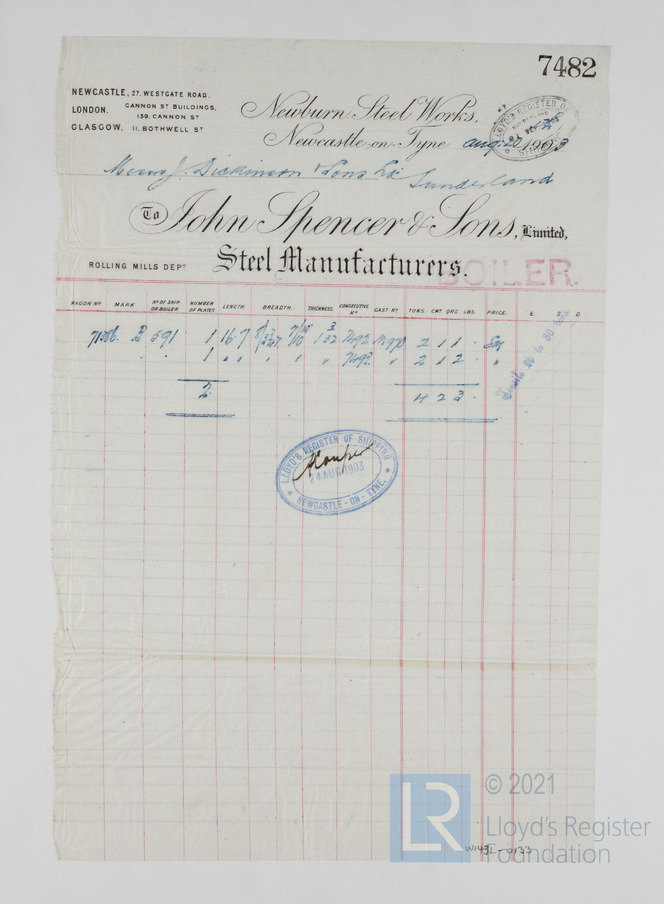 7482
NEWCASTLE, 27, WESTGATE ROAD.
LONDON. CANNON ST BUILDINGS,
139, CANNON ST
GLASGOW, 11, BOTHWELL ST
Newburn Steel Works,
Newcastle-on-Tyne Aug 20 1903
LLOYD'S REGISTER OF
Messrs J. Dickinson & Sons Ld Sunderland
To John Spencer & Sons, Limited,
ROLLING MILLS DEPT Steel Manufacturers.
BOILER.
WAGON No MARK No OF SHIP OR BOILER NUMBER OF PLATES LENGTH. BREADTH. THICKNESS. CONSECUTIVE No CAST No TONS. CWT QRS. LBS. PRICE. £. S. D.
591 1 16 7 2 1 1
1 " " " 2 1 2
2 4 2 3
LLOYD'S REGISTER OF SHIPPING
24 AUG 1903
NEWCASTLE-ON-TYNE.
© 2021
LR Lloyd's Register
Foundation